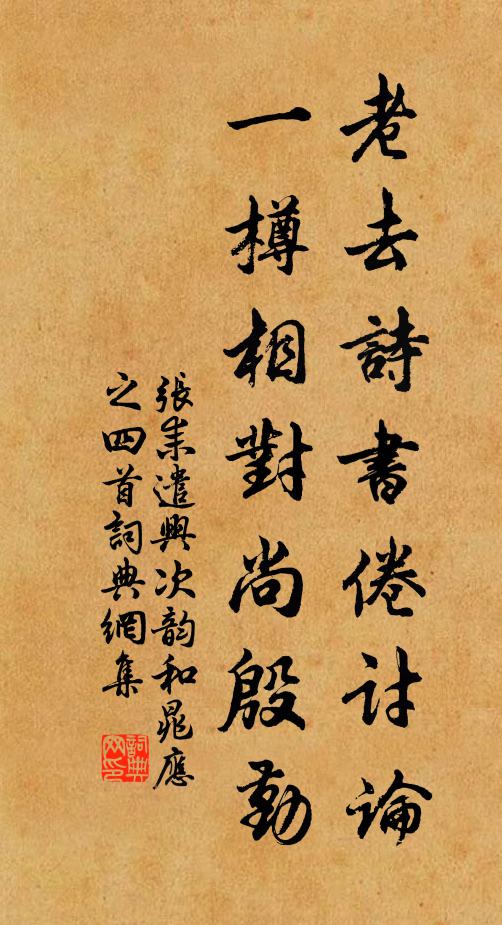 老去詩書倦討論
一樽相對尚殷勤
張耒遣興次韵和晁應
之四首詞典網集
詞典
网印